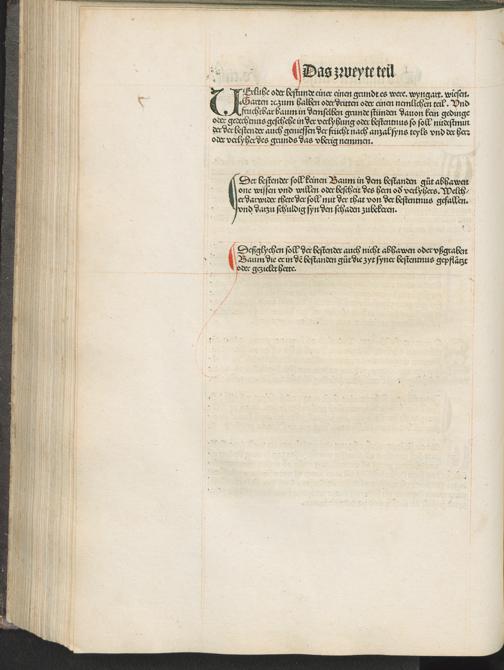 Das zweyte teil
VErluhe oder bestunde einer einen grundt es were. wyngart. wiesen.
Garten ꝛc. zum halben oder dritten oder einen nemlichen teil. Vnd
fruchtbar baum in demselben grunde stunden dauon kein gedinge
oder gerechenus geschehe in der verlyhung oder bestentnus so soll nüdestmyn
der der bestender auch geniessen der frücht nach anzal syns teyls vnd der herr
oder verlyher des grunds das vberig nemmen.
Der bestender soll keinen Baum in dem bestanden güt abhawen
one wissen vnd willen oder bescheit des hern oď verlyhers. Welch-
er darwider thete der soll mit der that von der bestentnus gefallen.
vnd darzu schuldig syn den schaden zubekeren.
Deßglychen soll der bestender auch nicht abhawen oder vßgraben
Baum die er in dē bestanden güt die zyt syner bestentnus gepflantzt
oder gezielet hette.